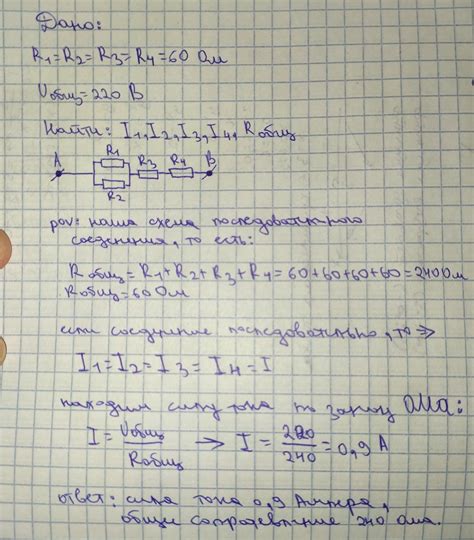 Дано:
R1=R2=R3=R4=60 Ом
Uобщ=220 В
Найти: I1,I2,I3,I4,Rобщ
R1
A R3 R4 B
R2
pov: наша схема последовательного
соединения, то есть:
Rобщ=R1+R2+R3+R4=60+60+60+60=240Ом
Rобщ=60Ом
если соединение последовательно, то ⇒
I1=I2=I3=I4=I
находим силу тока по закону ОМА:
I=Uобщ/Rобщ → I=220/240=0,9 А
ответ: сила тока 0,9 Ампера,
общие сопротевление 240 ома.